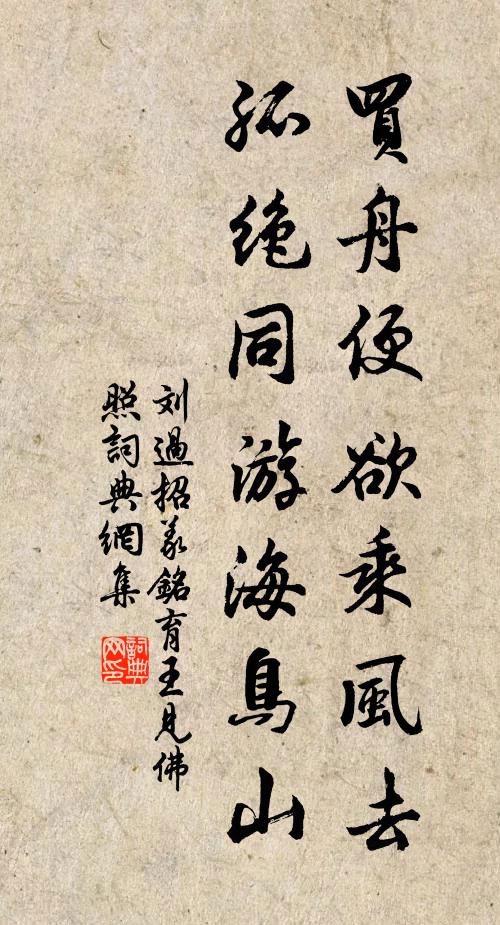 買舟便欲乘風去
孤絶同游海鳥山
刘過招義銘育王見佛
照詞典網集
詞典
网印